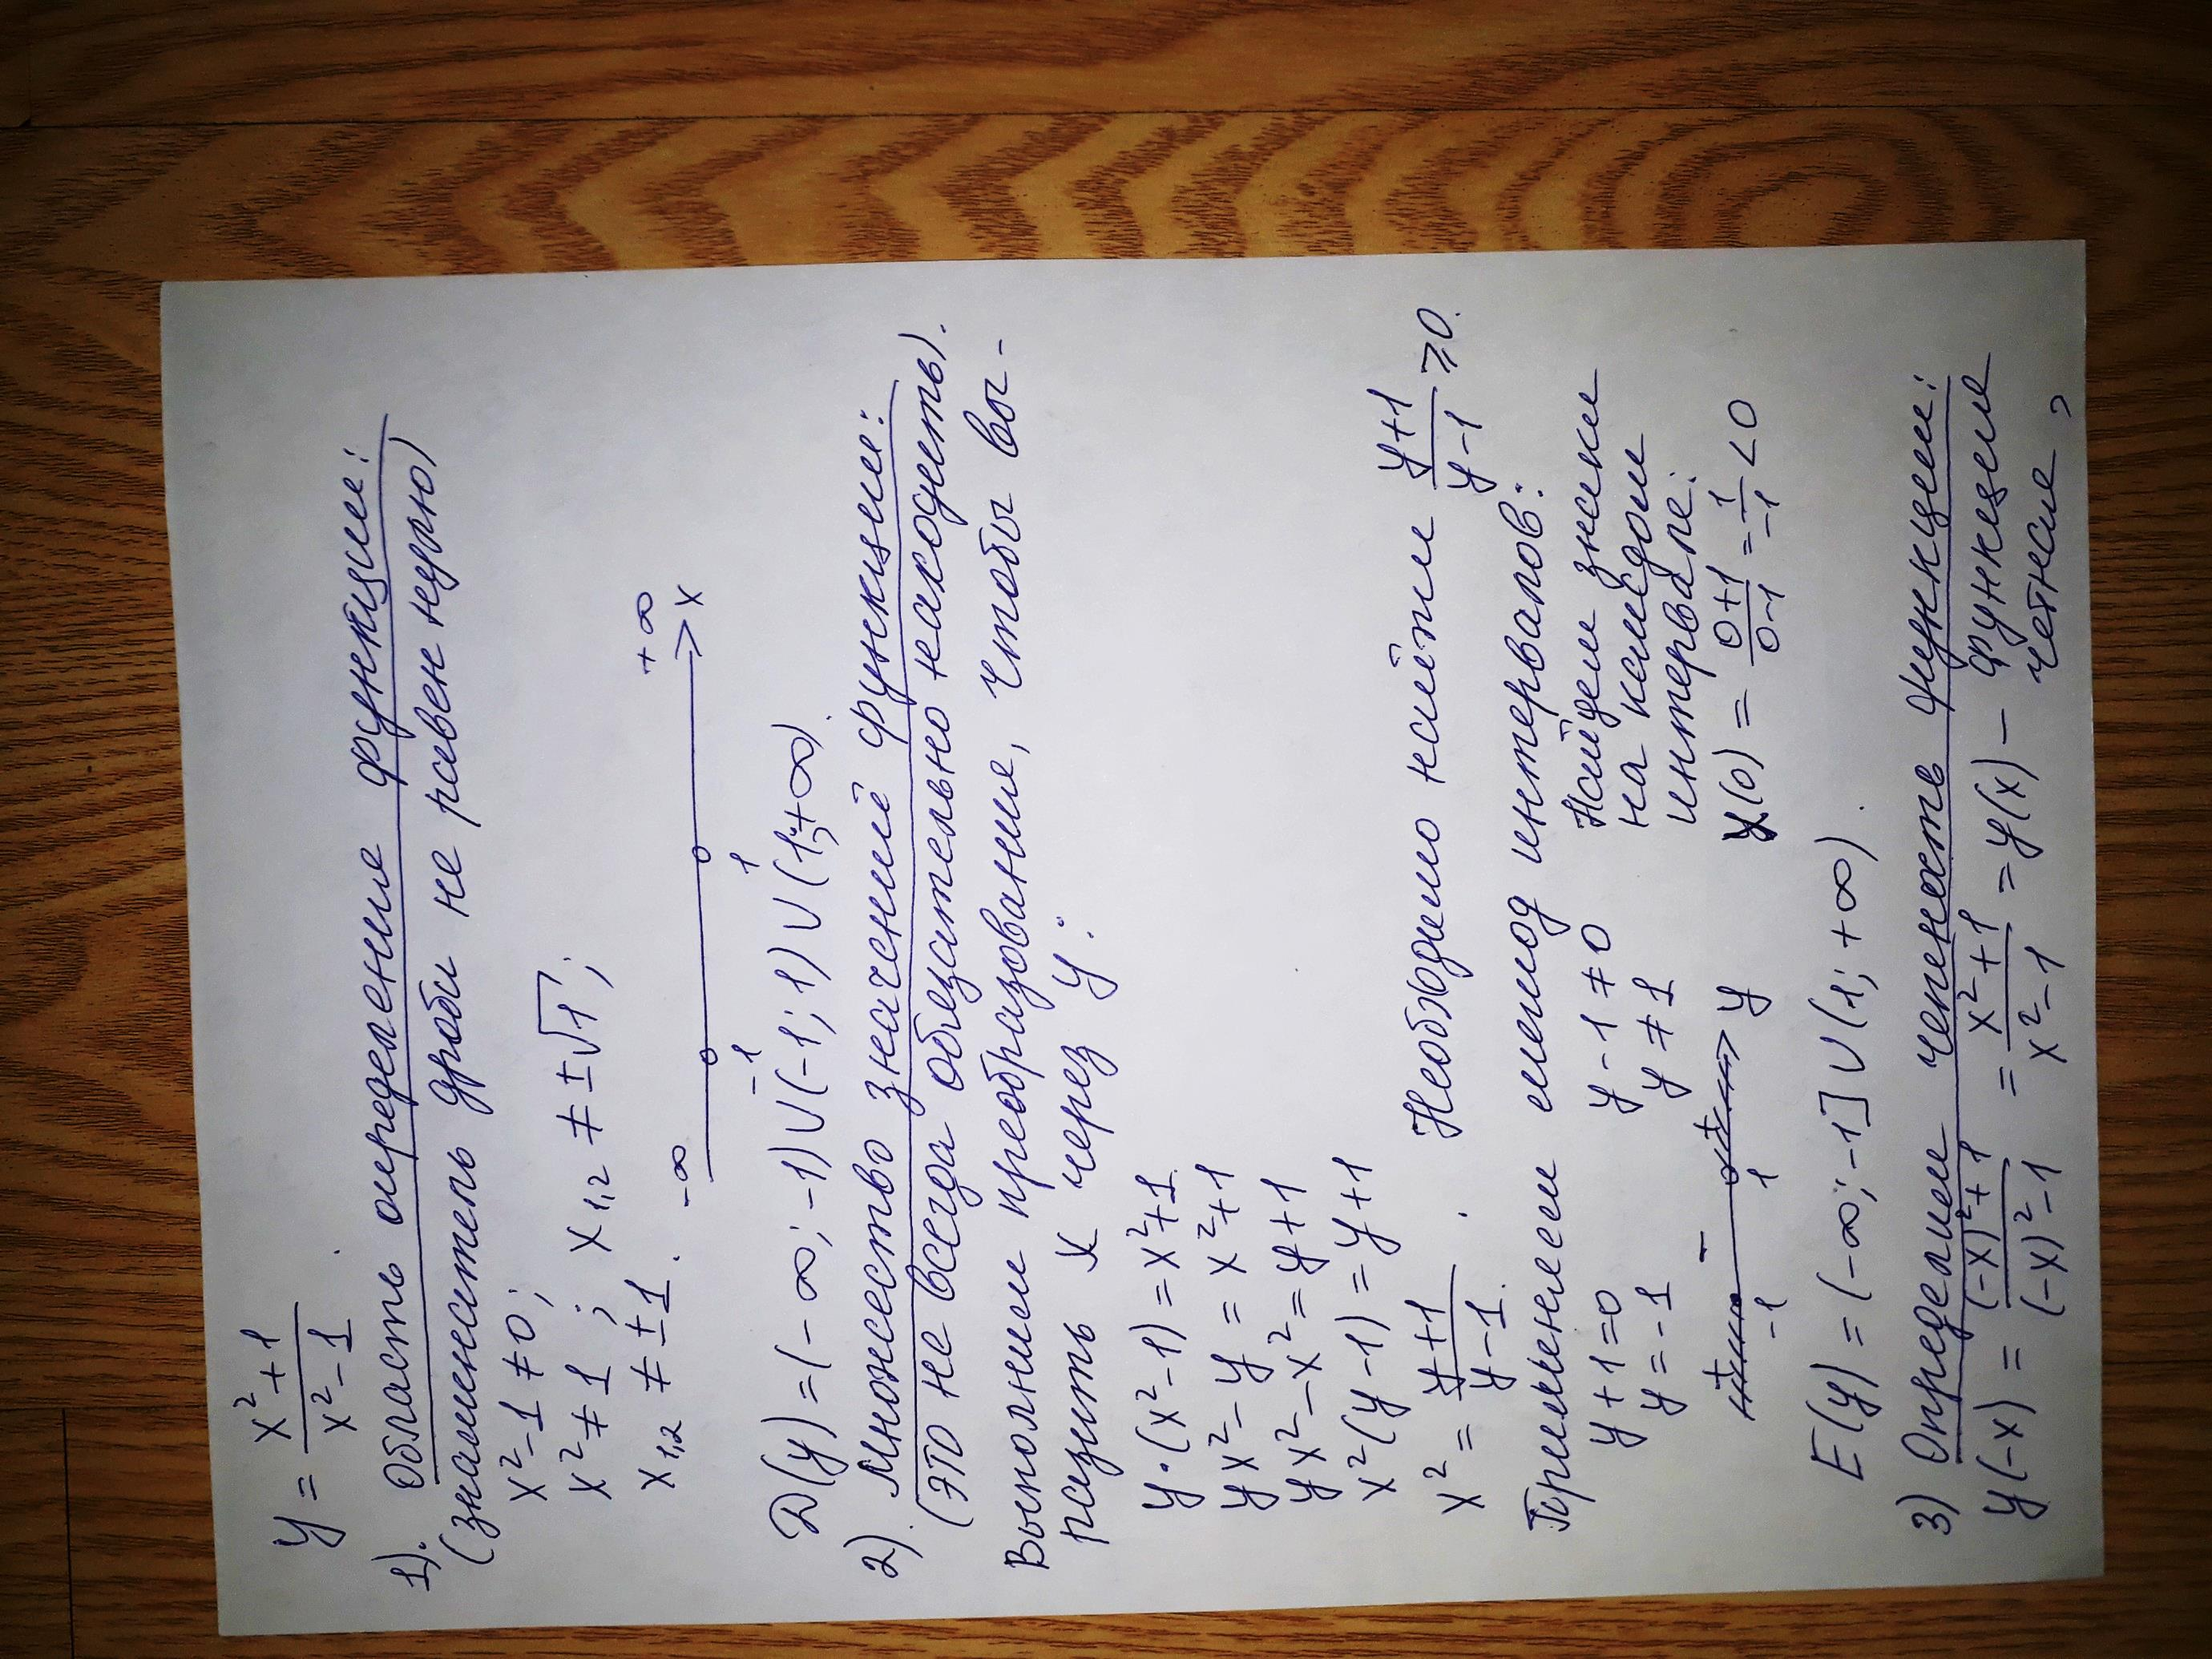 y = (x²+1)/(x²-1).
1). Область определения функции:
(знаменатель дроби не равен нулю)
x²-1≠0;
x²≠1; x₁,₂ ≠ ±√1;
x₁,₂ ≠ ±1.
-∞ -1 1 +∞ x
D(y) = (-∞; -1)∪(-1; 1)∪(1;+∞).
2). Множество значений функции:
(это не всегда обязательно находить).
Выполним преобразование, чтобы вы-
разить x через y:
y·(x²-1) = x²+1.
yx²-y = x²+1
yx²-x² = y+1
x²(y-1) = y+1
x² = (y+1)/(y-1). Необходимо найти (y+1)/(y-1) ≥ 0.
Применяем метод интервалов:
y+1=0 y-1≠0 Найдем знаки
y=-1 y≠1 на каждом
интервале:
+ - + y
-1 1
y(0) = (0+1)/(0-1) = 1/-1 < 0
E(y) = (-∞; -1]∪(1; +∞).
3) Определим четность функции:
y(-x) = ((-x)²+1)/((-x)²-1) = (x²+1)/(x²-1) = y(x) - функция
четная,